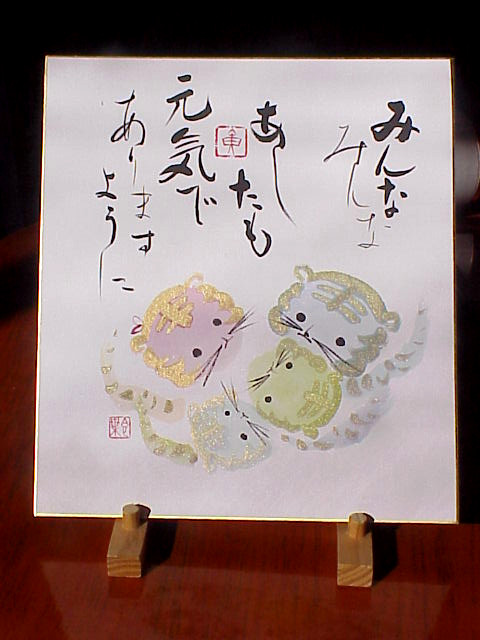 みんな
みんな
あし
たも
元気で
あります
ように
寅